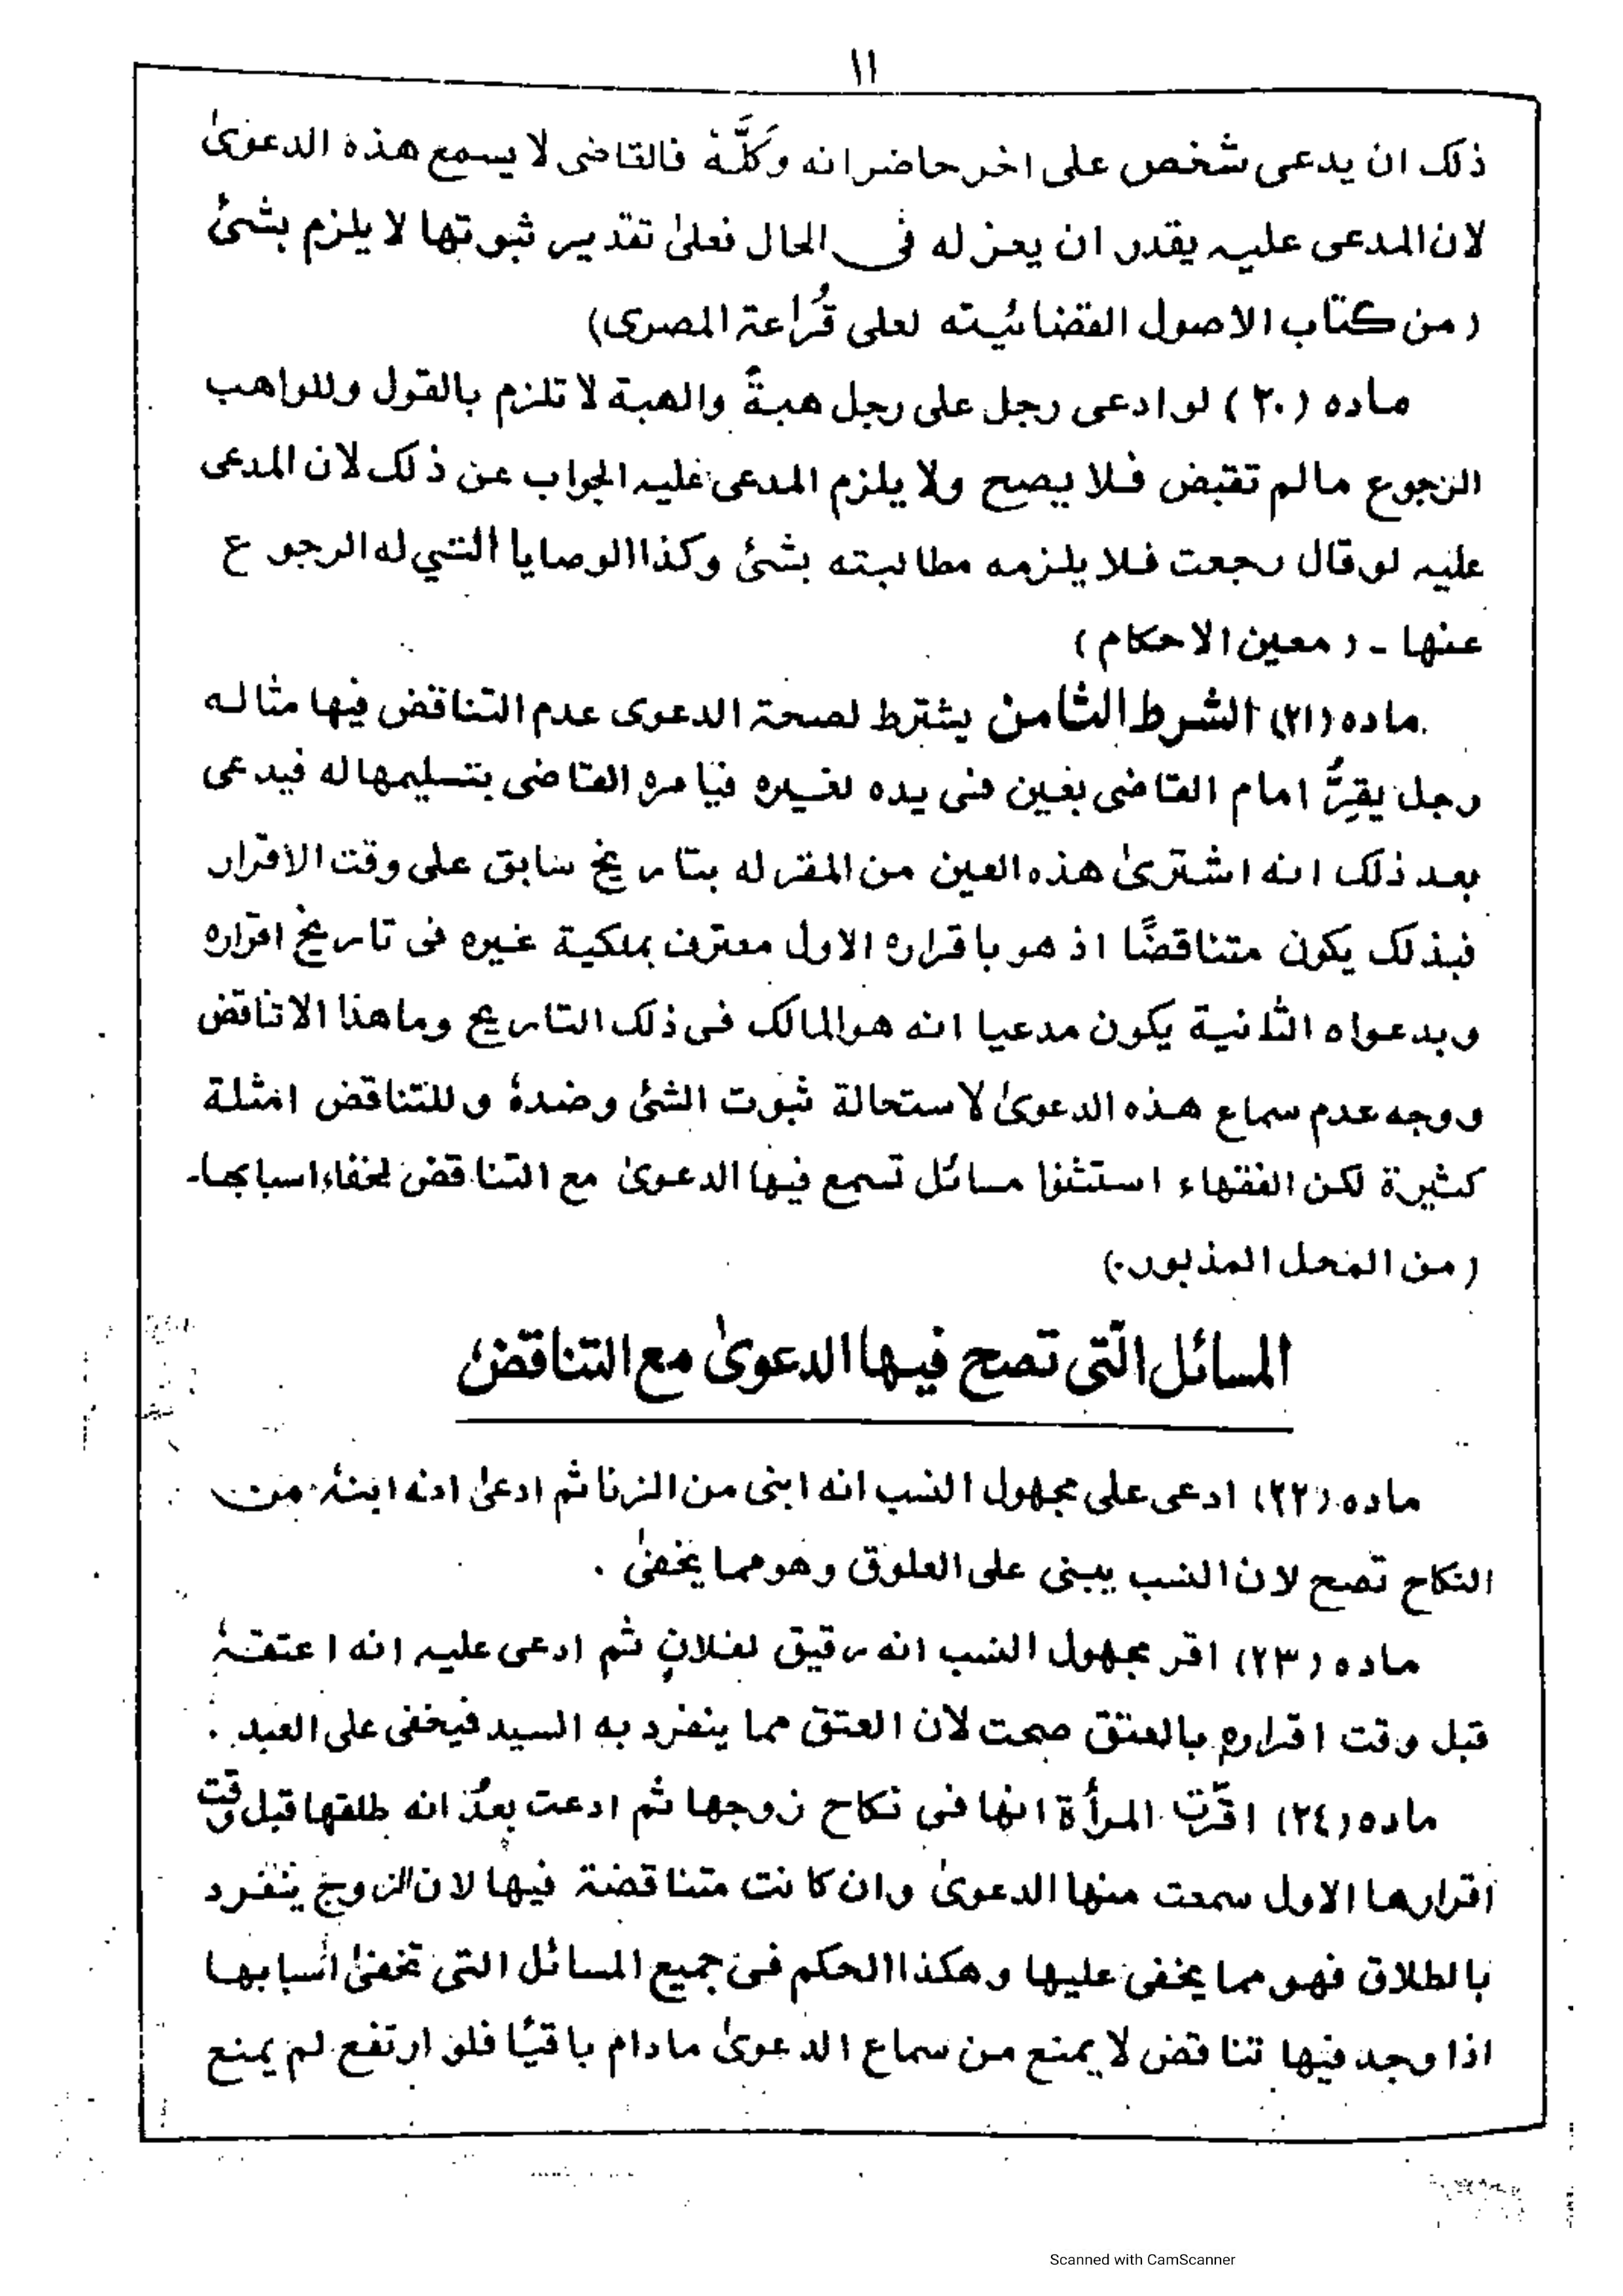 ١١
ذلك ان يدعى شخص على اخر حاضر انه وَكَّلَهٗ فالقاضى لا يسمع هذه الدعوىٰ
لان المدعى عليه يقدر ان يعزله فى الحال فعلىٰ تقدير ثبوتها لا يلزم بشئ
(من كتاب الاصول القضائيته لعلى قُراعة المصرى)
ماده (٢٠) لو ادعى رجل على رجل هبةً والهبة لا تلزم بالقول وللواهب
الرجوع مالم تقبض فلا يصح ولا يلزم المدعى عليه الجواب عن ذلك لان المدعى
عليه لو قال رجعت فلا يلزمه مطالبته بشئ وكذا الوصايا التي له الرجوع
عنها ـ (معين الاحكام)
ماده (٢١) الشرط الثامن يشترط لصحة الدعوى عدم التناقض فيها مثاله
رجل يقِرُّ امام القاضى بعين فى يده لغيره فيامره القاضى بتسليمها له فيدعى
بعد ذلك انه اشترىٰ هذه العين من المقر له بتاريخ سابق على وقت الاقرار
فبذلك يكون متناقضًا اذ هو باقراره الاول معترف بملكية غيره فى تاريخ اقراره
وبدعواه الثانية يكون مدعيا انه هو المالك فى ذلك التاريخ وما هذا الاتناقض
ووجه عدم سماع هذه الدعوىٰ لاستحالة ثبوت الشئ وضدهٗ وللتناقض امثلة
كثيرة لكن الفقهاء استثنوا مسائل تسمع فيها الدعوىٰ مع التناقض لخفاء اسبابها-
(من المحل المذبور.)
المسائل الّتى تصح فيها الدعوىٰ مع التناقض
ماده (٢٢) ادعى على مجهول النسب انه ابنى من الزنا ثم ادعىٰ انه ابنهٗ من
النكاح تصح لان النسب يبنى على العلوق وهو مما يخفىٰ .
ماده (٢٣) اقر مجهول النسب انه رقيق لفلانٍ ثم ادعى عليه انه اعتقهٗ
قبل وقت اقراره بالعتق صحت لان العتق مما ينفرد به السيد فيخفى على العبد .
ماده (٢٤) اقرّت المرأة انها فى نكاح زوجها ثم ادعت بعدُ انه طلقها قبل وقت
اقرارها الاول سمعت منها الدعوىٰ وان كانت متناقضة فيها لان الزوج ينفرد
بالطلاق فهو مما يخفى عليها وهكذا الحكم فى جميع المسائل التى تخفىٰ اسبابها
اذا وجد فيها تناقض لا يمنع من سماع الدعوىٰ مادام باقيًا فلو ارتفع لم يمنع
Scanned with CamScanner